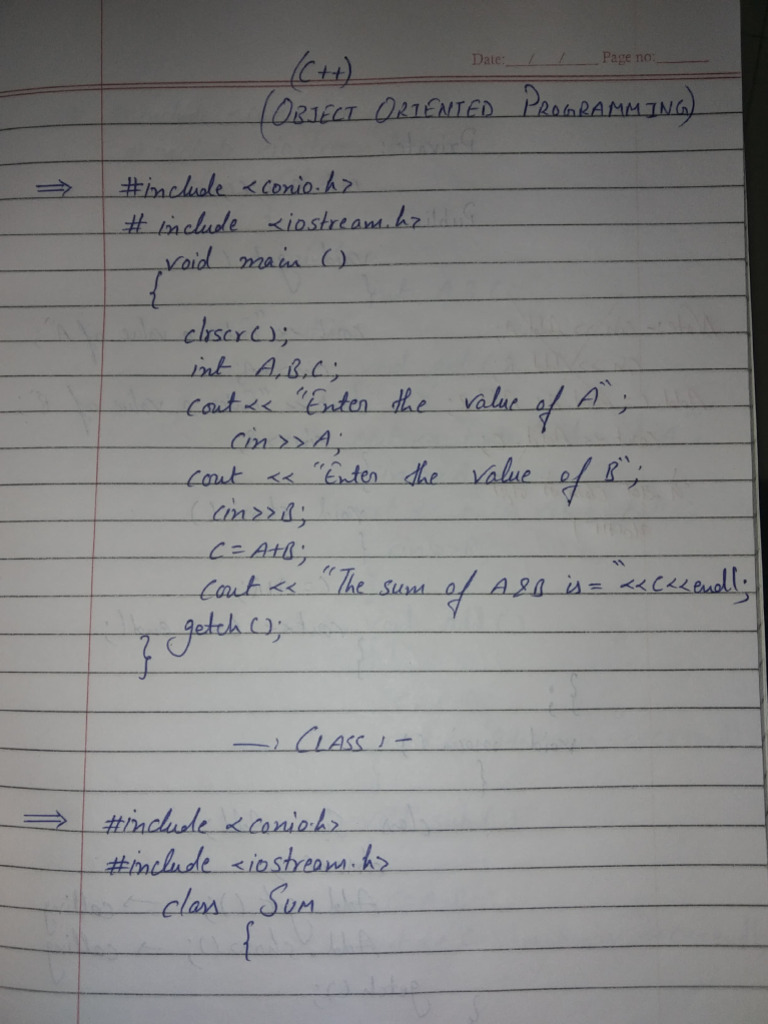 Date: / / Page no:
(C++)
(OBJECT ORIENTED PROGRAMMING)
⇒ #include <conio.h>
# include <iostream.h>
void main ()
{
clrscr();
int A,B,C;
cout<< "Enter the value of A";
cin>>A;
cout << "Enter the value of B";
cin>>B;
C=A+B;
cout << "The sum of A&B is= "<<C<<endl;
getch();
}
—: CLASS :-
⇒ #include <conio.h>
#include <iostream.h>
class SUM
{